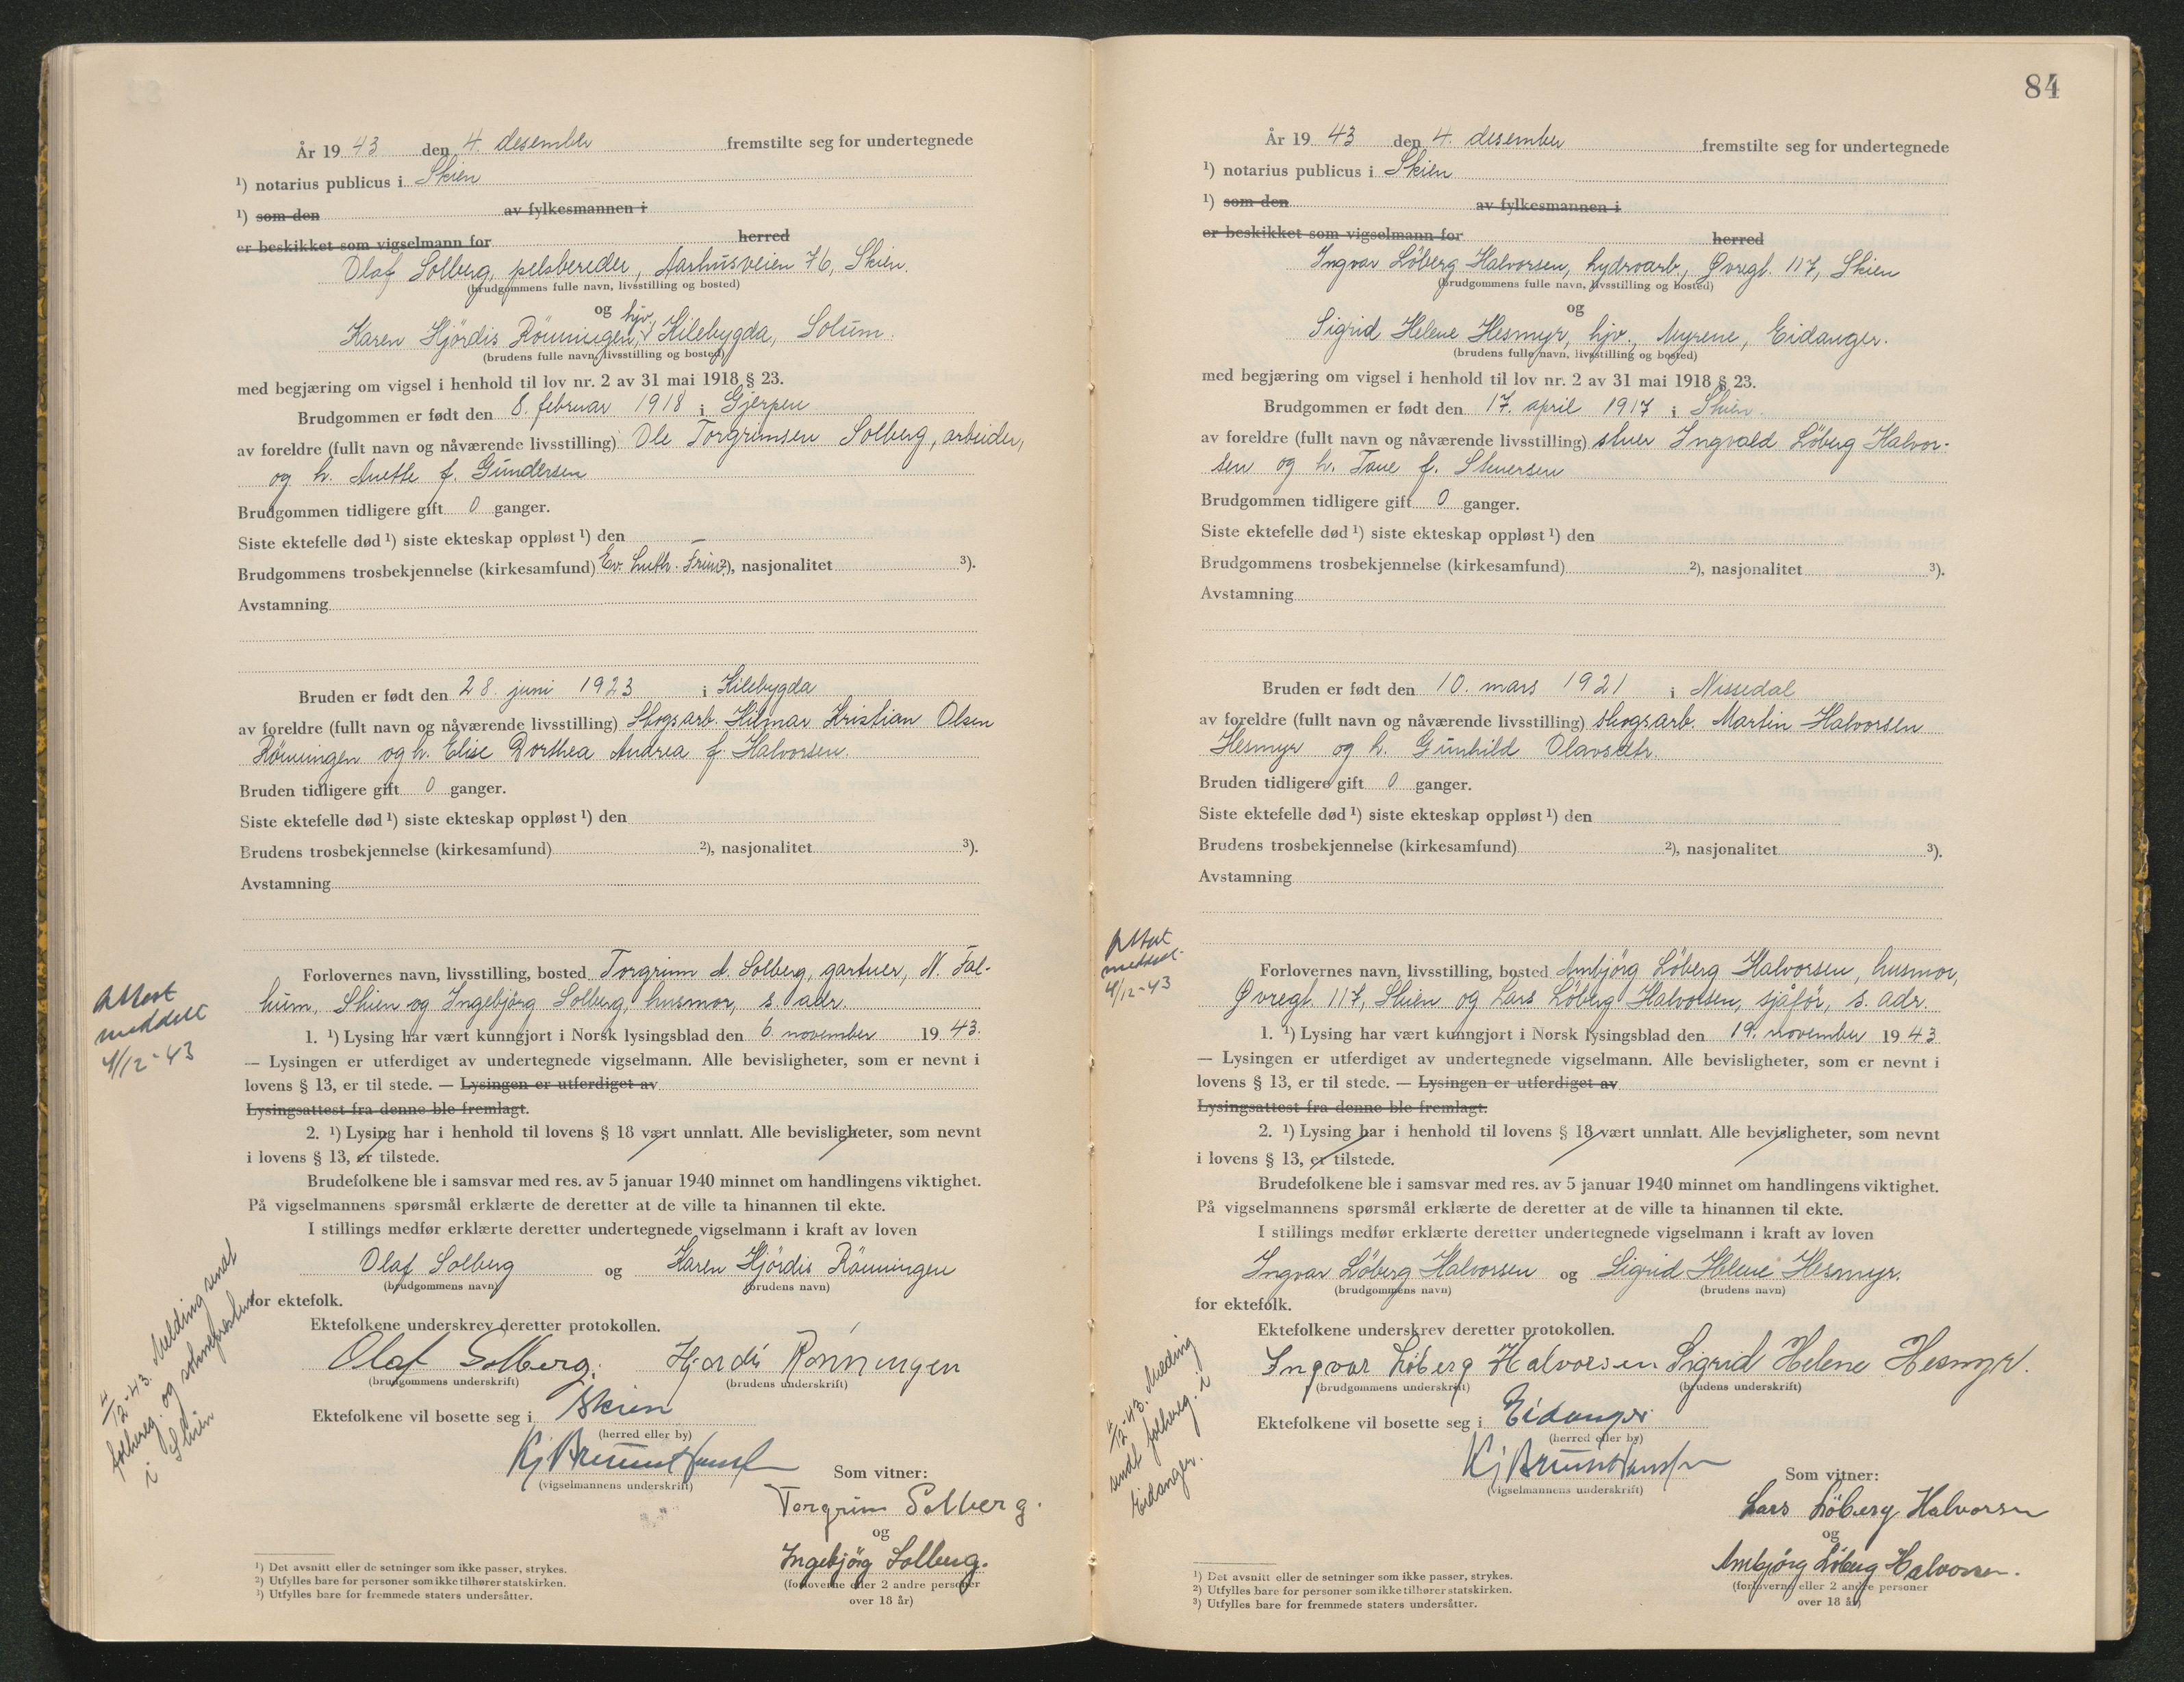 År 19 43 den 4. desember fremstilte seg for undertegnede
¹) notarius publicus i Skien
¹) som den av fylkesmannen i
er beskikket som vigselmann for herred
Olaf Solberg, pelsbereder, Aarhusveien 76, Skien.
(brudgommens fulle navn, livsstilling og bosted)
og
Karen Hjördis Rönningen, hjv, Kilebygda, Solum.
(brudens fulle navn, livsstilling og bosted)
med begjæring om vigsel i henhold til lov nr. 2 av 31 mai 1918 § 23.
Brudgommen er født den 8. februar 1918 i Gjerpen
av foreldre (fullt navn og nåværende livsstilling) Ole Torgrimsen Solberg, arbeider,
og h. Anette f. Gundersen
Brudgommen tidligere gift 0 ganger.
Siste ektefelle død ¹) siste ekteskap oppløst ¹) den —
Brudgommens trosbekjennelse (kirkesamfund) Ev. Luth. Frim ²), nasjonalitet ³).
Avstamning
Bruden er født den 28. juni 1923 i Kilebygda
av foreldre (fullt navn og nåværende livsstilling) Skogsarb. Hilmar Kristian Olsen
Rönningen og h. Elise Dorthea Andrea f. Halvorsen.
Bruden tidligere gift 0 ganger.
Siste ektefelle død ¹) siste ekteskap oppløst ¹) den
Brudens trosbekjennelse (kirkesamfund) ²), nasjonalitet ³).
Avstamning
Forlovernes navn, livsstilling, bosted Torgrim A. Solberg, gartner, N. Fal-
hum, Skien og Ingebjörg Solberg, husmor, s. adr.
Attest
meddelt
4/12-43
1. ¹) Lysing har vært kunngjort i Norsk lysingsblad den 6. november 19 43.
— Lysingen er utferdiget av undertegnede vigselmann. Alle bevisligheter, som er nevnt i
lovens § 13, er til stede. — Lysingen er utferdiget av
Lysingsattest fra denne ble fremlagt.
2. ¹) Lysing har i henhold til lovens § 18 vært unnlatt. Alle bevisligheter, som nevnt
i lovens § 13, er tilstede.
Brudefolkene ble i samsvar med res. av 5 januar 1940 minnet om handlingens viktighet.
På vigselmannens spørsmål erklærte de deretter at de ville ta hinannen til ekte.
I stillings medfør erklærte deretter undertegnede vigselmann i kraft av loven
Olaf Solberg og Karen Hjördis Rönningen
(brudgommens navn) (brudens navn)
for ektefolk.
Ektefolkene underskrev deretter protokollen.
Olaf Solberg. Hjördis Rönningen
(brudgommens underskrift) (brudens underskrift)
4/12-43. Melding sendt
folkereg. og
i Skien
Ektefolkene vil bosette seg i Skien
(herred eller by)
(vigselmannens underskrift)
Som vitner:
Torgrim Solberg.
og
Ingebjörg Solberg.
(forloverne eller 2 andre personer
over 18 år)
¹) Det avsnitt eller de setninger som ikke passer, strykes.
²) Utfylles bare for personer som ikke tilhører statskirken.
³) Utfylles bare for fremmede staters undersåtter.
84
År 19 43 den 4. desember fremstilte seg for undertegnede
¹) notarius publicus i Skien
¹) som den av fylkesmannen i
er beskikket som vigselmann for herred
Ingvar Löberg Halvorsen, hydroarb., Øvregt. 117, Skien
(brudgommens fulle navn, livsstilling og bosted)
og
Sigrid Helene Hesmyr, hjv., Myrene, Eidanger.
(brudens fulle navn, livsstilling og bosted)
med begjæring om vigsel i henhold til lov nr. 2 av 31 mai 1918 § 23.
Brudgommen er født den 17. april 1917 i Skien.
av foreldre (fullt navn og nåværende livsstilling) stuer Ingvald Löberg Halvor-
sen og h. Tone f. Stenersen
Brudgommen tidligere gift 0 ganger.
Siste ektefelle død ¹) siste ekteskap oppløst ¹) den
Brudgommens trosbekjennelse (kirkesamfund) ²), nasjonalitet ³).
Avstamning
Bruden er født den 10. mars 1921 i Nissedal
av foreldre (fullt navn og nåværende livsstilling) skogsarb. Martin Halvorsen
Hesmyr og h. Gunhild Olavsdtr.
Bruden tidligere gift 0 ganger.
Siste ektefelle død ¹) siste ekteskap oppløst ¹) den
Brudens trosbekjennelse (kirkesamfund) ²), nasjonalitet ³).
Avstamning
Attest
meddelt
4/12-43
Forlovernes navn, livsstilling, bosted Ambjörg Löberg Halvorsen, husmor,
Øvregt. 117, Skien og Lars Löberg Halvorsen, sjåför, s. adr.
1. ¹) Lysing har vært kunngjort i Norsk lysingsblad den 19. november 19 43
— Lysingen er utferdiget av undertegnede vigselmann. Alle bevisligheter, som er nevnt i
lovens § 13, er til stede. — Lysingen er utferdiget av
Lysingsattest fra denne ble fremlagt.
2. ¹) Lysing har i henhold til lovens § 18 vært unnlatt. Alle bevisligheter, som nevnt
i lovens § 13, er tilstede.
Brudefolkene ble i samsvar med res. av 5 januar 1940 minnet om handlingens viktighet.
På vigselmannens spørsmål erklærte de deretter at de ville ta hinannen til ekte.
I stillings medfør erklærte deretter undertegnede vigselmann i kraft av loven
Ingvar Löberg Halvorsen og Sigrid Helene Hesmyr.
(brudgommens navn) (brudens navn)
for ektefolk.
Ektefolkene underskrev deretter protokollen.
Ingvar Löberg Halvorsen Sigrid Helene Hesmyr.
(brudgommens underskrift) (brudens underskrift)
4/12-43. Melding
sendt folkereg. i
Eidanger.
Ektefolkene vil bosette seg i Eidanger
(herred eller by)
(vigselmannens underskrift)
Som vitner:
Lars Löberg Halvorsen
og
Ambjörg Löberg Halvorsen.
(forloverne eller 2 andre personer
over 18 år)
¹) Det avsnitt eller de setninger som ikke passer, strykes.
²) Utfylles bare for personer som ikke tilhører statskirken.
³) Utfylles bare for fremmede staters undersåtter.